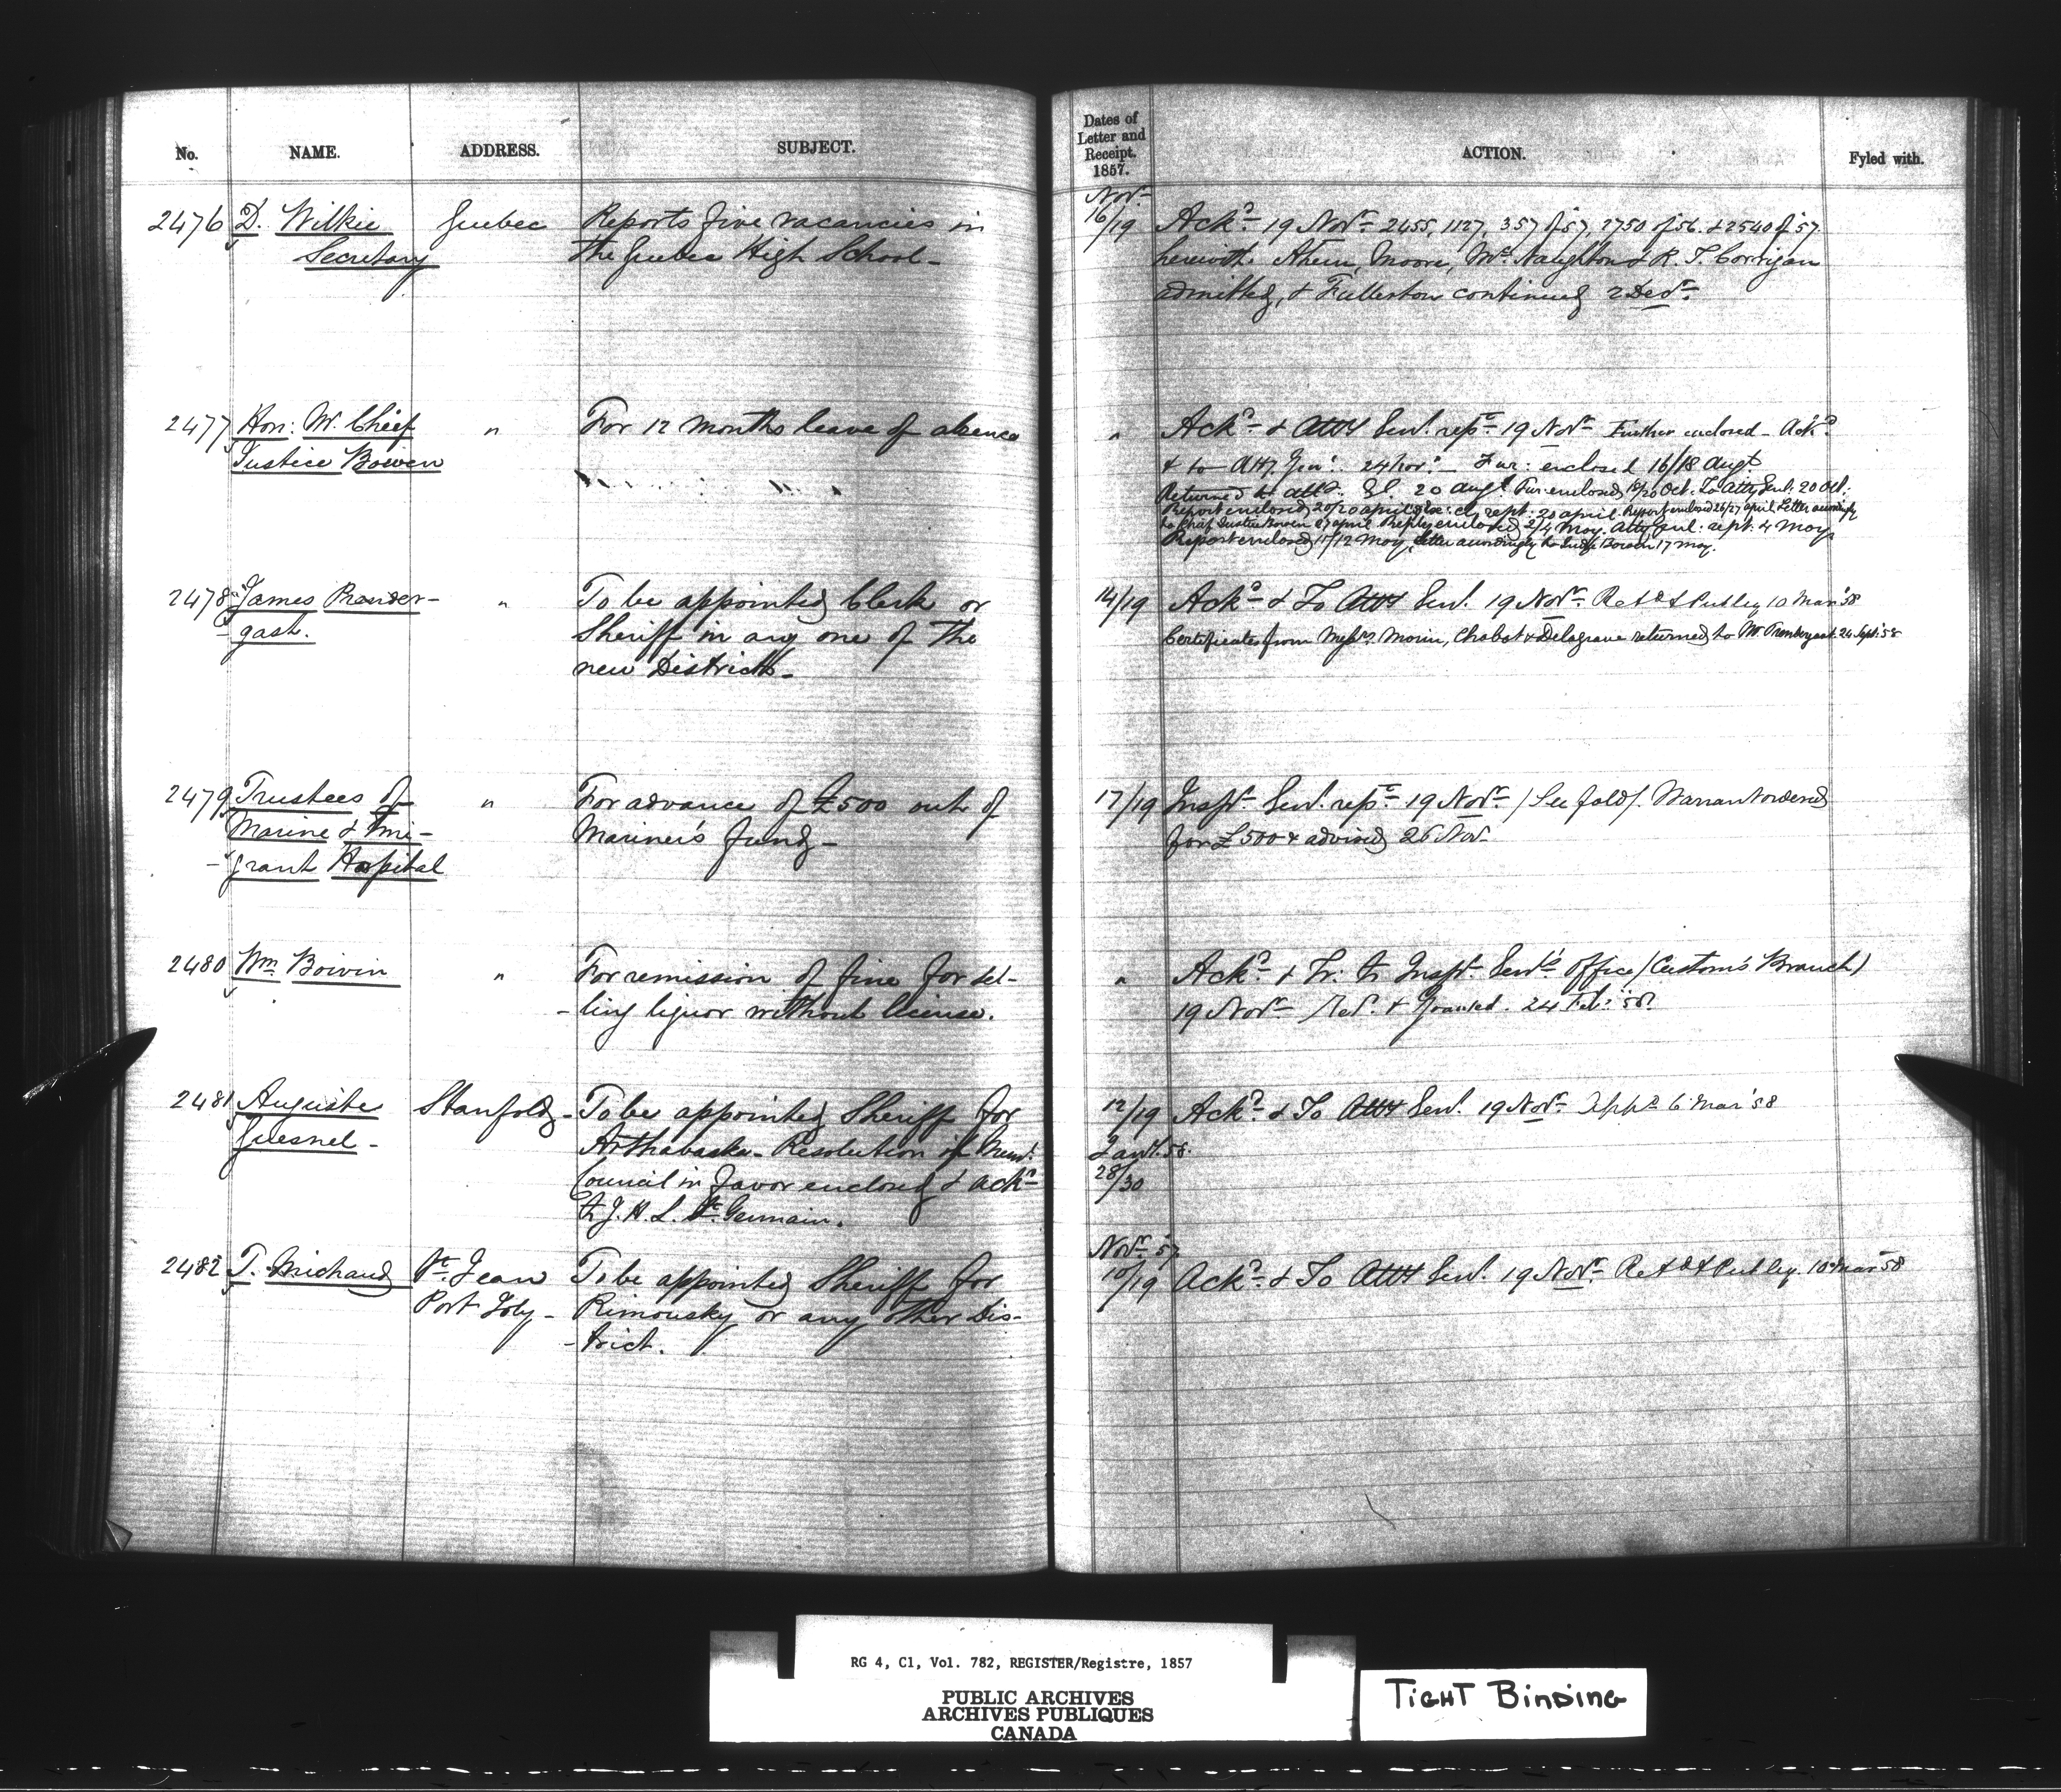 No. NAME. ADDRESS. SUBJECT.
2476 D. Wilkie Quebec Reports five vacancies in
Secretary the Quebec High School -
2477 Hon: Mr. Chief " For 12 months leave of absence
Justice Bowen
2478 James Prender- " To be appointed Clerk or
gast. Sheriff in any one of the
new Districts -
2479 Trustees of " For advance of £500 out of
Marine & Emi- Mariner's fund -
-grant Hospital
2480 Wm Boivin " For remission of fine for sel-
-ling liquor without license.
2481 Auguste Stanfold - To be appointed Sheriff for
Quesnel - Arthabaska - Resolution of Muni:
Council in favor enclosed & Ackd
to J. H. L. St. Germain.
2482 T. Michaud St. Jean To be appointed Sheriff for
Port Joly - Rimousky or any other Dis-
-trict.
Dates of
Letter and
Receipt.
1857.
ACTION. Fyled with.
Novr
16/19 Ackd 19 Novr 2455, 1127, 357 of 57, 2750 of 56. & 2540 of 57
herewith Ahern, Moore, McNaughton & R. T. Corrigan
admitted, & Fullerton continued 2 Decr
" Ackd & Atty Genl. refd 19 Novr Further enclosed - Ackd
& to Atty Genl. 24 Novr - Fur: enclosed 16/18 Augt
Returned to Atty. Gl. 20 Augt Fur: enclosed 18/20 Oct. To Atty Genl. 20 Oct.
Report enclosed 20/20 april rept. 20 april. Report enclosed 26/27 april Letter accordingly
to Chief Justice Bowen 27 april. Reply enclosed 2/4 May. Atty Genl. rept. 4 May.
Report enclosed 11/12 May, letter accordingly to Judge Bowen 17 May.
14/19 Ackd & To Atty Genl. 19 Novr Retd & Put by 10 Mar '58
Certificates from Messrs. Morin, Chabot & Delagrave returned to Mr. Prendergast 24 Sept. 58
17/19 Inspr Genl. refd 19 Novr / See fold /. Warrant ordered
for £500 & advised 26 Novr
" Ackd & Tr: to Inspr. Genl's Office (Customs Branch)
19 Novr Ref. & Granted. 24 Feb: 58.
12/19 Ackd & To Atty Genl. 19 Novr Appd 6 Mar '58
Janl. 58.
28/30
Novr 57
10/19 Ackd & To Atty Genl. 19 Novr Retd & Put by. 10 Mar 58
RG 4, C1, Vol. 782, REGISTER/Registre, 1857
PUBLIC ARCHIVES
ARCHIVES PUBLIQUES
CANADA
TIGHT BINDING